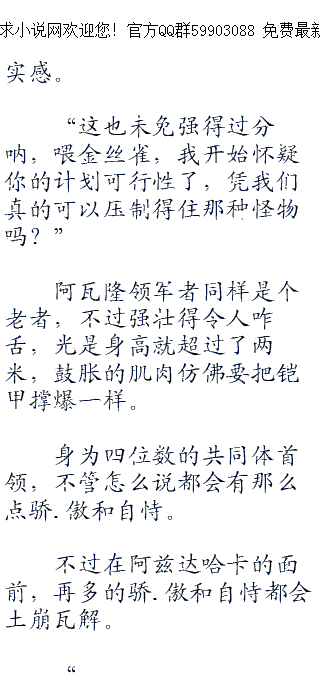 求小说网欢迎您! 官方QQ群59903088 免费最新
实感。
“这也未免强得过分
呐，喂金丝雀，我开始怀疑
你的计划可行性了，凭我们
真的可以压制得住那种怪物
吗？”
阿瓦隆领军者同样是个
老者，不过强壮得令人咋
舌，光是身高就超过了两
米，鼓胀的肌肉仿佛要把铠
甲撑爆一样。
身为四位数的共同体首
领，不管怎么说都会有那么
点骄.傲和自恃。
不过在阿兹达哈卡的面
前，再多的骄.傲和自恃都会
土崩瓦解。
“